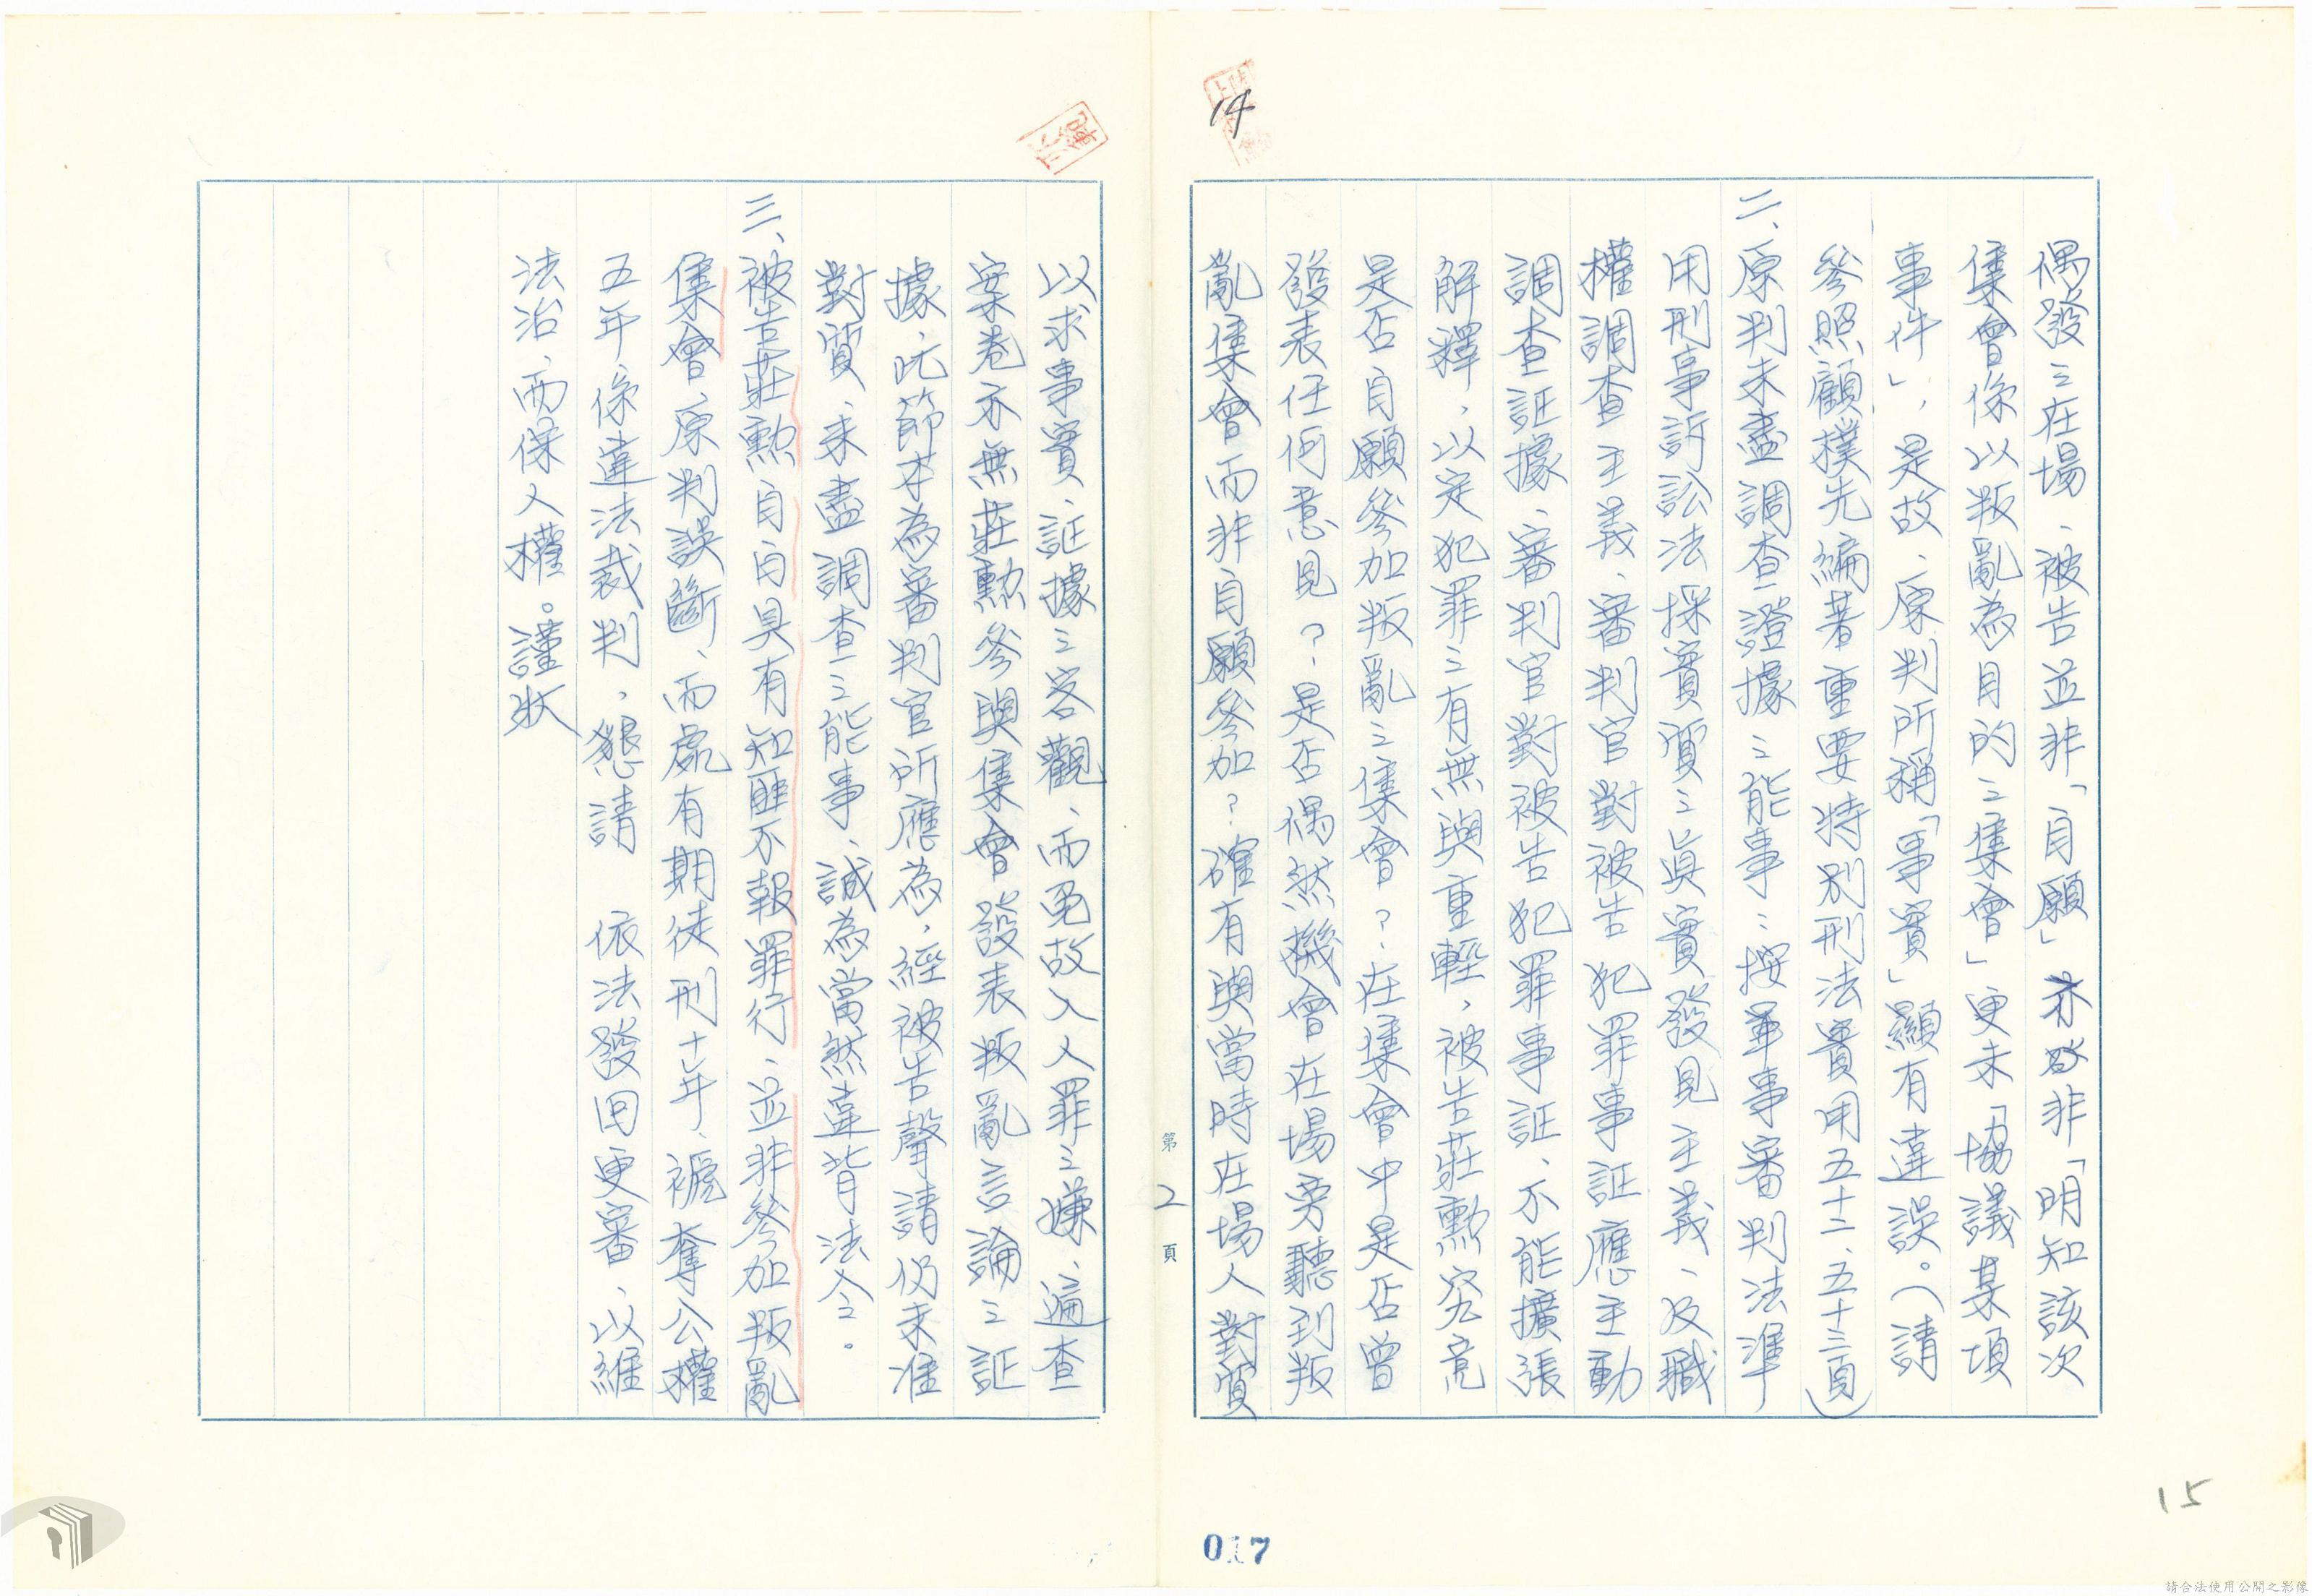 偶發之在場、被告並非「自願」亦非「明知該次
集會係以叛亂為目的之集會」更未「協議某項
事件」、是故、原判所稱「事實」顯有違誤。(請
參照顧樸先編著重要特別刑法實用五十二、五十三頁)
二、原判未盡調查證據之能事：按軍事審判法準
用刑事訴訟法採實質之眞實發見主義、及職
權調查主義、審判官對被告犯罪事証應主動
調查証據、審判官對被告犯罪事証、不能擴張
解釋、以定犯罪之有無與重輕、被告莊勲究竟
是否自願參加叛亂之集會？在集會中是否曾
發表任何意見？是否偶然機會在場旁聽到叛
亂集會而非自願參加？確有與當時在場人對質
以求事實、証據之客觀、而免故入人罪之嫌、遍查
案卷亦無莊勲參與集會發表叛亂言論之証
據、此節本為審判官所應為、經被告聲請仍未准
對質、未盡調查之能事、誠為當然違背法令。
三、被告莊勲自白具有知匪不報罪行、並非參加叛亂
集會、原判誤斷、而處有期徒刑十年、褫奪公權
五年、係違法裁判、懇請 依法發回更審、以維
法治、而保人權。謹狀
第2頁
14
15
017
請合法使用公開之影像